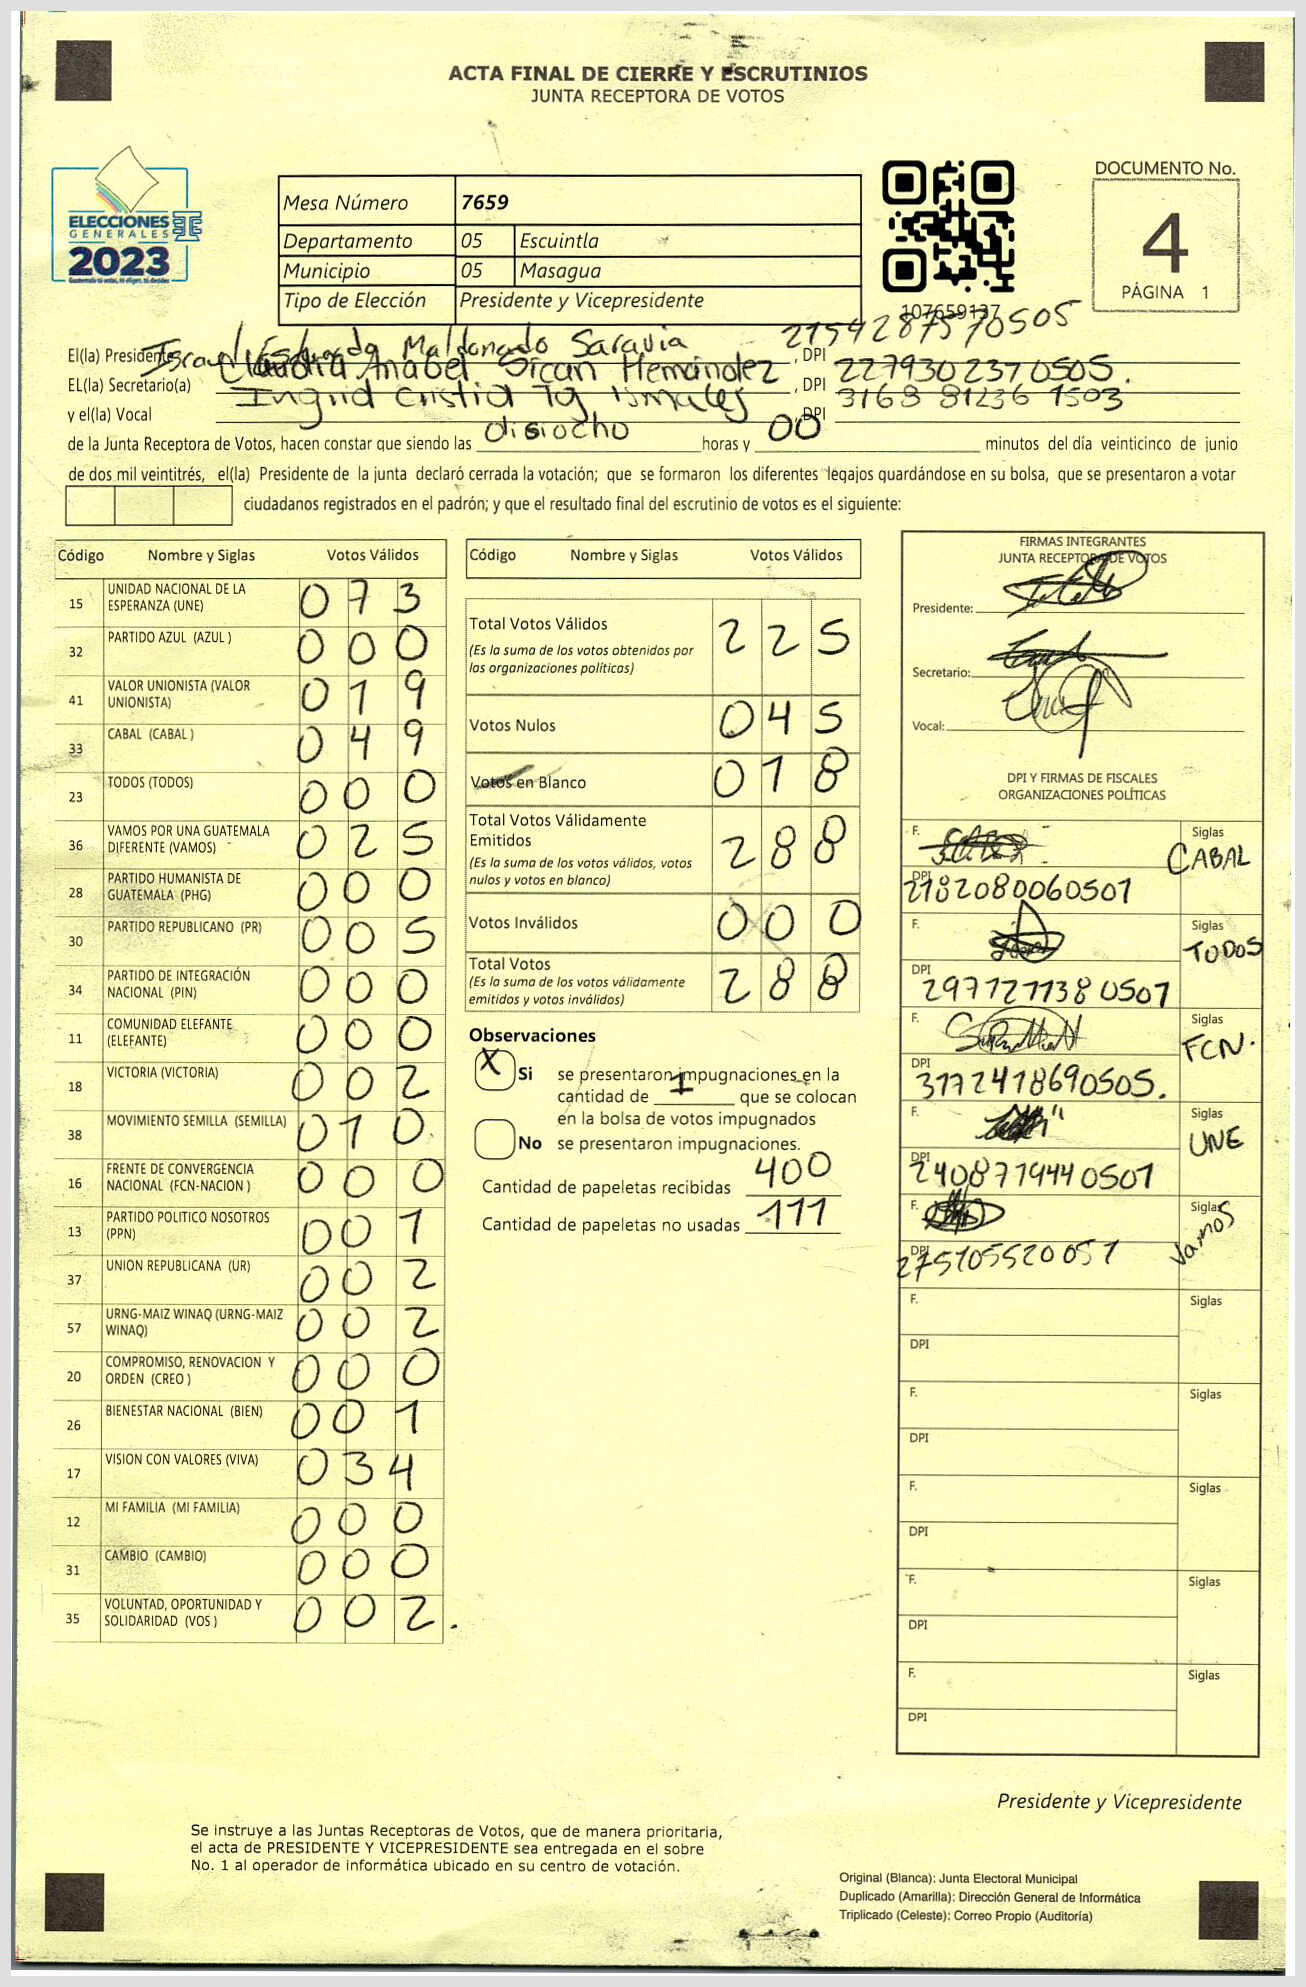 ACTA FINAL DE CIERRE Y ESCRUTINIOS
JUNTA RECEPTORA DE VOTOS
ELECCIONES
GENERALES
2023
Mesa Número 7659
Departamento 05 Escuintla
Municipio 05 Masagua
Tipo de Elección Presidente y Vicepresidente
107659137
DOCUMENTO No.
4
PÁGINA 1
El(la) Presidente Maldonado Saravia , DPI 2154287570505
EL(la) Secretario(a) Claudia Anabel Sican Hernández , DPI 2279302370505.
y el(la) Vocal Ingrid , DPI 3168 81236 1503
de la Junta Receptora de Votos, hacen constar que siendo las disiocho horas y 00 minutos del día veinticinco de junio
de dos mil veintitrés, el(la) Presidente de la junta declaró cerrada la votación; que se formaron los diferentes legajos guardándose en su bolsa, que se presentaron a votar
ciudadanos registrados en el padrón; y que el resultado final del escrutinio de votos es el siguiente:
Código Nombre y Siglas Votos Válidos
15 UNIDAD NACIONAL DE LA ESPERANZA (UNE) 073
32 PARTIDO AZUL (AZUL ) 000
41 VALOR UNIONISTA (VALOR UNIONISTA) 019
33 CABAL (CABAL ) 049
23 TODOS (TODOS) 000
36 VAMOS POR UNA GUATEMALA DIFERENTE (VAMOS) 025
28 PARTIDO HUMANISTA DE GUATEMALA (PHG) 000
30 PARTIDO REPUBLICANO (PR) 005
34 PARTIDO DE INTEGRACIÓN NACIONAL (PIN) 000
11 COMUNIDAD ELEFANTE (ELEFANTE) 000
18 VICTORIA (VICTORIA) 002
38 MOVIMIENTO SEMILLA (SEMILLA) 010
16 FRENTE DE CONVERGENCIA NACIONAL (FCN-NACION ) 000
13 PARTIDO POLITICO NOSOTROS (PPN) 001
37 UNION REPUBLICANA (UR) 002
57 URNG-MAIZ WINAQ (URNG-MAIZ WINAQ) 002
20 COMPROMISO, RENOVACION Y ORDEN (CREO ) 000
26 BIENESTAR NACIONAL (BIEN) 001
17 VISION CON VALORES (VIVA) 034
12 MI FAMILIA (MI FAMILIA) 000
31 CAMBIO (CAMBIO) 000
35 VOLUNTAD, OPORTUNIDAD Y SOLIDARIDAD (VOS ) 002.
Código Nombre y Siglas Votos Válidos
Total Votos Válidos 225
(Es la suma de los votos obtenidos por
las organizaciones políticas)
Votos Nulos 045
Votos en Blanco 018
Total Votos Válidamente
Emitidos 288
(Es la suma de los votos válidos, votos
nulos y votos en blanco)
Votos Inválidos 000
Total Votos 288
(Es la suma de los votos válidamente
emitidos y votos inválidos)
Observaciones
X Si se presentaron impugnaciones en la
cantidad de 1 que se colocan
en la bolsa de votos impugnados
No se presentaron impugnaciones.
Cantidad de papeletas recibidas 400
Cantidad de papeletas no usadas 111
FIRMAS INTEGRANTES
JUNTA RECEPTORA DE VOTOS
Presidente:
Secretario:
Vocal:
DPI Y FIRMAS DE FISCALES
ORGANIZACIONES POLÍTICAS
F. Siglas CABAL
DPI 2182080060501
F. Siglas TODOS
DPI 2971271380501
F. Siglas FCN.
DPI 3172418690505.
F. Siglas UNE
DPI 2408719440501
F. Siglas Vamos
DPI 275105520051
F. Siglas
DPI
F. Siglas
DPI
F. Siglas
DPI
F. Siglas
DPI
F. Siglas
DPI
Presidente y Vicepresidente
Se instruye a las Juntas Receptoras de Votos, que de manera prioritaria,
el acta de PRESIDENTE Y VICEPRESIDENTE sea entregada en el sobre
No. 1 al operador de informática ubicado en su centro de votación.
Original (Blanca): Junta Electoral Municipal
Duplicado (Amarilla): Dirección General de Informática
Triplicado (Celeste): Correo Propio (Auditoría)